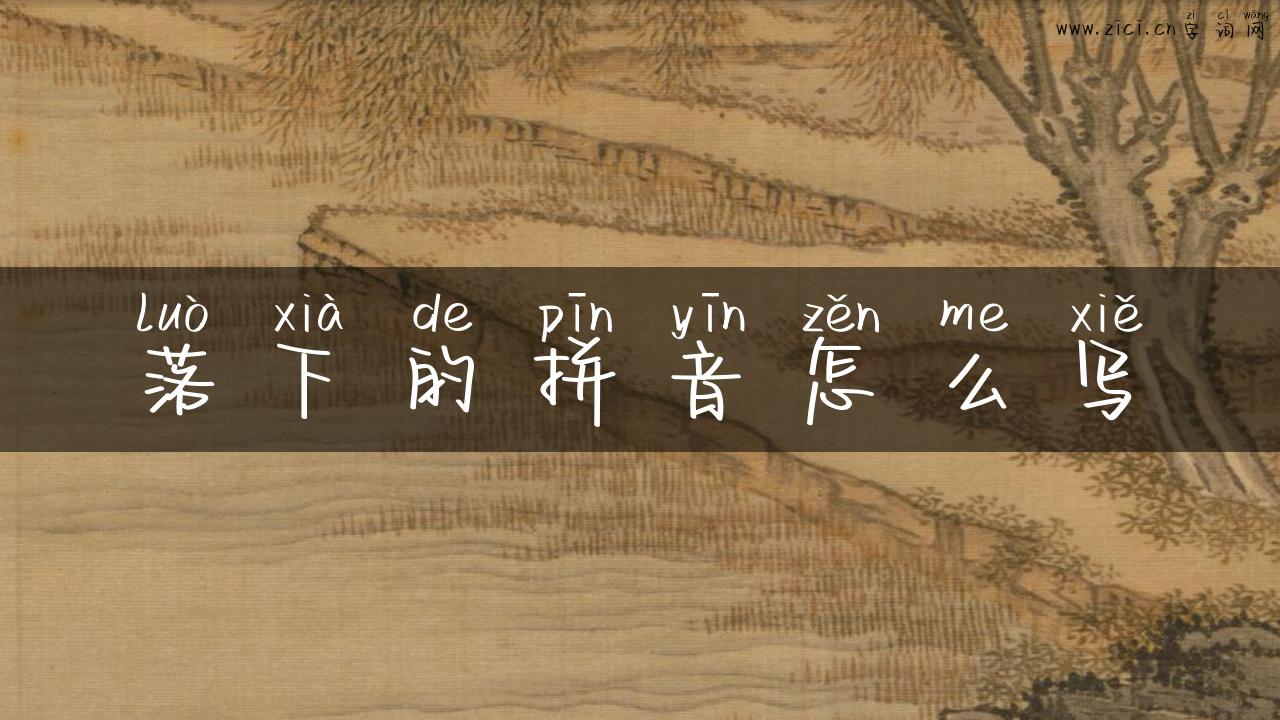 zì cí wǎng
www.zici.cn字词网
luò xià de pīn yīn zěn me xiě
落下的拼音怎么写